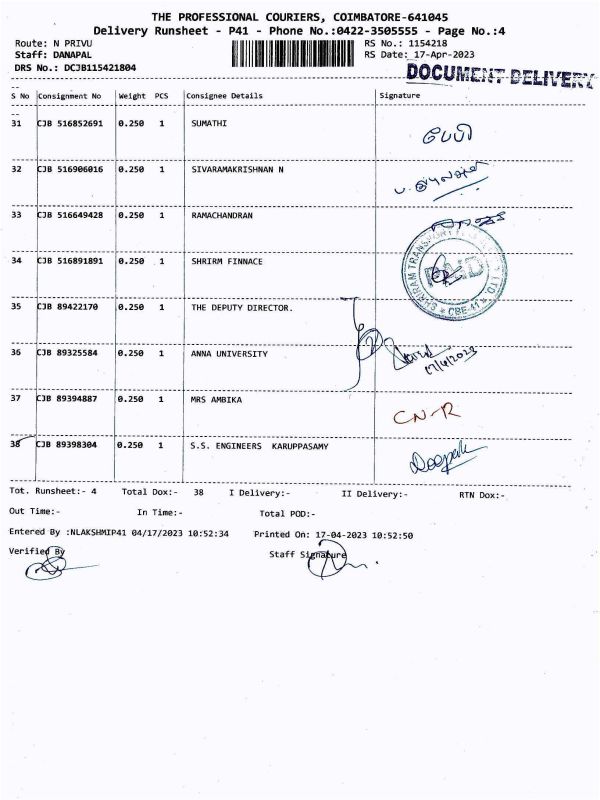 THE PROFESSIONAL COURIERS, COIMBATORE-641045
Delivery Runsheet - P41 - Phone No.:0422-3505555 - Page No.:4
Route: N PRIVU RS No.: 1154218
Staff: DANAPAL RS Date: 17-Apr-2023
DRS No.: DCJB115421804
DOCUMENT DELIVERY
S No Consignment No Weight PCS Consignee Details Signature
31 CJB 516852691 0.250 1 SUMATHI
பேபி
32 CJB 516906016 0.250 1 SIVARAMAKRISHNAN N
33 CJB 516649428 0.250 1 RAMACHANDRAN
34 CJB 516891891 0.250 1 SHRIRM FINNACE
SHRIRAM TRANSPORT LTD. * CBE-41 *
35 CJB 89422170 0.250 1 THE DEPUTY DIRECTOR.
36 CJB 89325584 0.250 1 ANNA UNIVERSITY
17/4/2023
37 CJB 89394887 0.250 1 MRS AMBIKA
CN-R
38 CJB 89398304 0.250 1 S.S. ENGINEERS KARUPPASAMY
Deepak
Tot. Runsheet:- 4 Total Dox:- 38 I Delivery:- II Delivery:- RTN Dox:-
Out Time:- In Time:- Total POD:-
Entered By :NLAKSHMIP41 04/17/2023 10:52:34 Printed On: 17-04-2023 10:52:50
Verified By Staff Signature